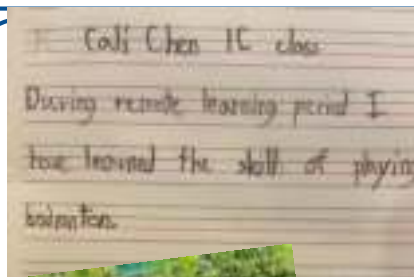 Cali Chen 1C class
During remote learning period I
have learned the skill of playing
badminton.